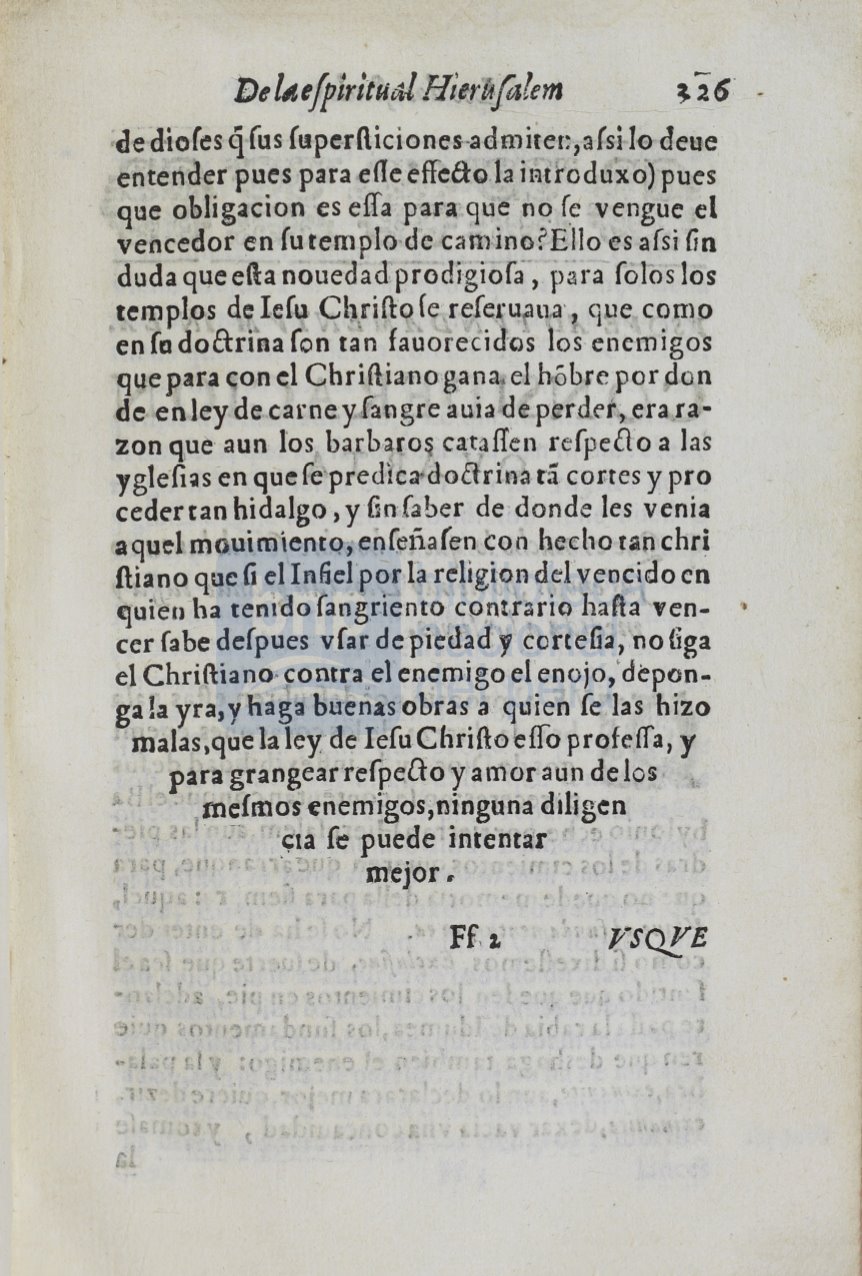 De la eſpiritual Hieruſalem 326
de dioſes q̃ ſus ſuperſticiones admiten, aſsi lo deue
entender pues para eſſe effecto la introduxo) pues
que obligacion es eſſa para que no ſe vengue el
vencedor en ſu templo de camino? Ello es aſsi ſin
duda que eſta nouedad prodigioſa, para ſolos los
templos de Ieſu Chriſto ſe reſeruaua, que como
en ſu doctrina ſon tan fauorecidos los enemigos
que para con el Chriſtiano gana el hõbre por don
de en ley de carne y ſangre auia de perder, era ra-
zon que aun los barbaros cataſſen reſpecto a las
ygleſias en que ſe predica doctrina tã cortes y pro
ceder tan hidalgo, y ſin ſaber de donde les venia
aquel mouimiento, enſeñaſen con hecho tan chri
ſtiano que ſi el Infiel por la religion del vencido en
quien ha tenido ſangriento contrario haſta ven-
cer ſabe deſpues vſar de piedad y corteſia, no ſiga
el Chriſtiano contra el enemigo el enojo, depon-
ga la yra, y haga buenas obras a quien ſe las hizo
malas, que la ley de Ieſu Chriſto eſſo profeſſa, y
para grangear reſpecto y amor aun de los
meſmos enemigos, ninguna diligen
cia ſe puede intentar
mejor.
Ff 2 VSQVE